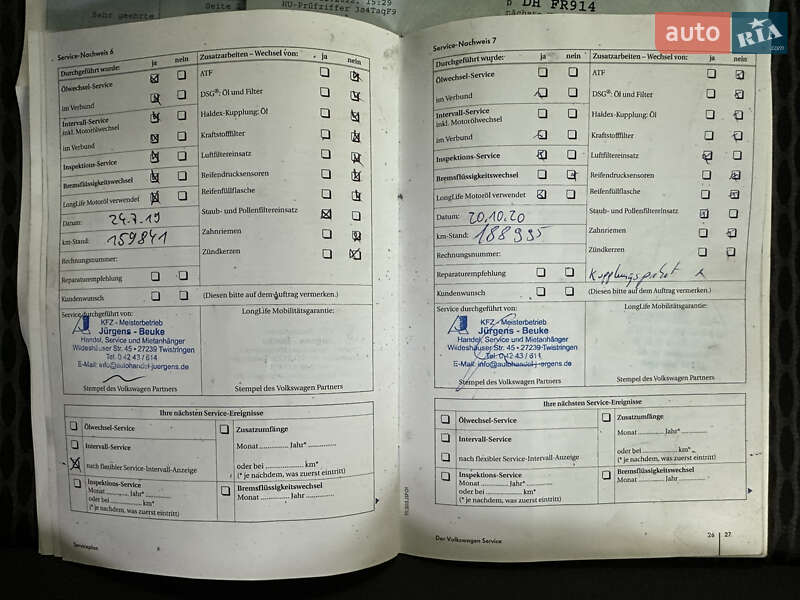 Sehr geehrte
Seite
15:29
HU-Prüfziffer 3o4TaqF9
DH FR914
auto RIA .com
Service-Nachweis 6
Durchgeführt wurde: ja nein
Ölwechsel-Service
im Verbund
Intervall-Service
inkl. Motorölwechsel
im Verbund
Inspektions-Service
Bremsflüssigkeitswechsel
LongLife Motoröl verwendet
Datum: 24.7.19
km-Stand: 159841
Rechnungsnummer:
Reparaturempfehlung
Kundenwunsch
Zusatzarbeiten – Wechsel von: ja nein
ATF
DSG®: Öl und Filter
Haldex-Kupplung: Öl
Kraftstofffilter
Luftfiltereinsatz
Reifendrucksensoren
Reifenfüllflasche
Staub- und Pollenfiltereinsatz
Zahnriemen
Zündkerzen
(Diesen bitte auf dem Auftrag vermerken.)
Service durchgeführt von:
KFZ - Meisterbetrieb
Jürgens - Beuke
Handel, Service und Mietanhänger
Wildeshauser Str. 45 • 27239 Twistringen
Tel. 0 42 43 / 614
E-Mail: info@autohandel-juergens.de
Stempel des Volkswagen Partners
LongLife Mobilitätsgarantie:
Stempel des Volkswagen Partners
Ihre nächsten Service-Ereignisse
Ölwechsel-Service
Intervall-Service
nach flexibler Service-Intervall-Anzeige
Inspektions-Service
Monat Jahr*
oder bei km*
(* je nachdem, was zuerst eintritt)
Zusatzumfänge
Monat Jahr*
oder bei km*
(* je nachdem, was zuerst eintritt)
Bremsflüssigkeitswechsel
Monat Jahr
Serviceplan
Service-Nachweis 7
Durchgeführt wurde: ja nein
Ölwechsel-Service
im Verbund
Intervall-Service
inkl. Motorölwechsel
im Verbund
Inspektions-Service
Bremsflüssigkeitswechsel
LongLife Motoröl verwendet
Datum: 20.10.20
km-Stand: 188995
Rechnungsnummer:
Reparaturempfehlung
Kundenwunsch
Zusatzarbeiten – Wechsel von: ja nein
ATF
DSG®: Öl und Filter
Haldex-Kupplung: Öl
Kraftstofffilter
Luftfiltereinsatz
Reifendrucksensoren
Reifenfüllflasche
Staub- und Pollenfiltereinsatz
Zahnriemen
Zündkerzen
(Diesen bitte auf dem Auftrag vermerken.)
Service durchgeführt von:
KFZ - Meisterbetrieb
Jürgens - Beuke
Handel, Service und Mietanhänger
Wildeshauser Str. 45 • 27239 Twistringen
Tel. 0 42 43 / 614
E-Mail: info@autohandel-juergens.de
Stempel des Volkswagen Partners
LongLife Mobilitätsgarantie:
Stempel des Volkswagen Partners
Ihre nächsten Service-Ereignisse
Ölwechsel-Service
Intervall-Service
nach flexibler Service-Intervall-Anzeige
Inspektions-Service
Monat Jahr*
oder bei km*
(* je nachdem, was zuerst eintritt)
Zusatzumfänge
Monat Jahr*
oder bei km*
(* je nachdem, was zuerst eintritt)
Bremsflüssigkeitswechsel
Monat Jahr
Der Volkswagen Service
26 27